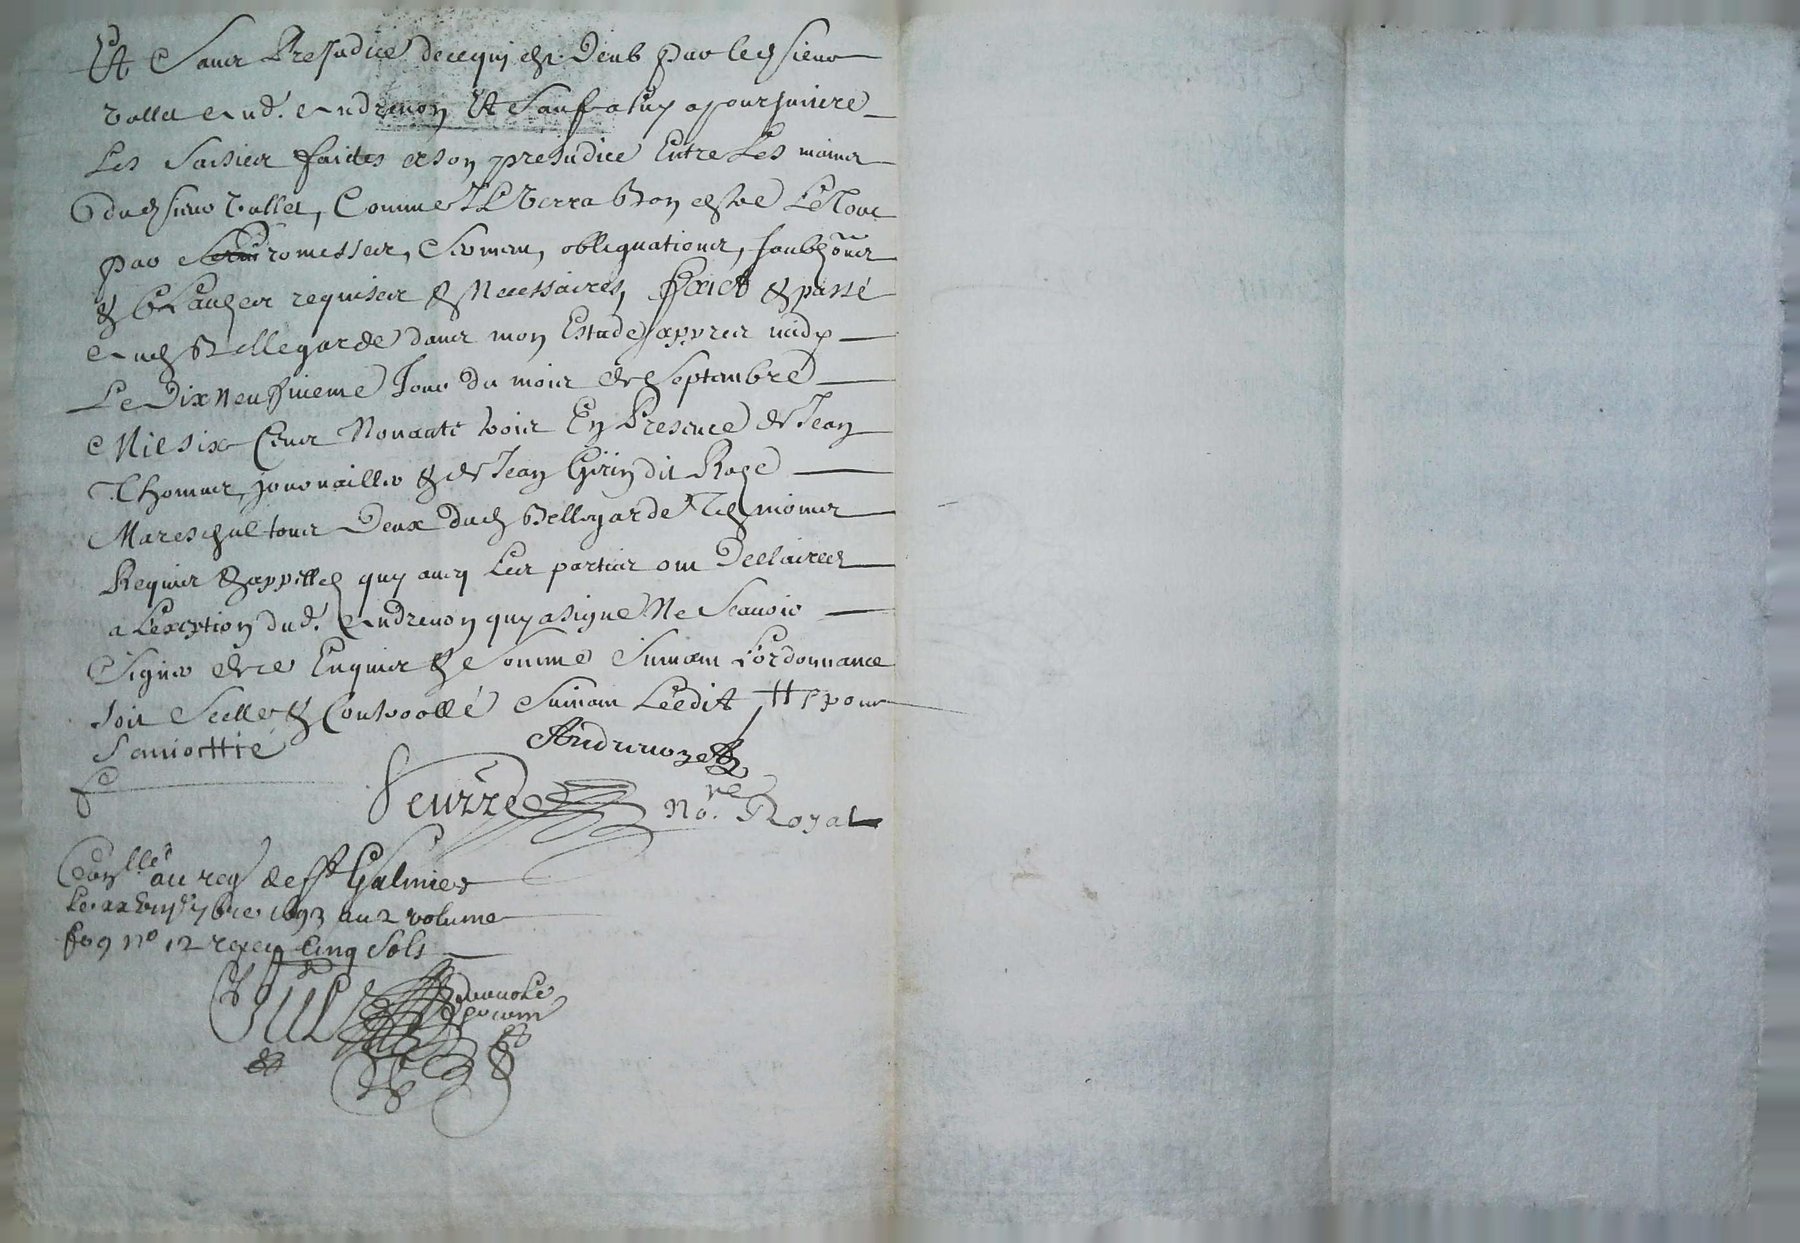 Et Sans Prejudice de ce qui est Deub par led sieur
Vallet aud. Andrenon Et Sauf a luy a poursuivre
Les Saisies faites a son prejudice Entre Les mains
dud sieur Vallet, Comme Il Verra Bon estre Le Tout
par promesses, Serment, obligations, soubz^ons
& Clauzes requises & Necessaires, Faict & passé
aud Bellegarde dans mon Estude appres midy
Le Dix Neufvieme Jour du mois de Septambre
Mil six Cens Nonante trois En Presence de Jean
Thomas, Journaillier & de Jean Girin dit Roze
Mareschal tous Deux dud Bellegarde Tesmoins
Requis & appellez quy avecq Les parties ont Declairez
a L'exception dud. Andrenon quy a signé Ne Scavoir
Signer de ce Enquis & Somme Suivant L'ordonnance
soit Scellé & Controollé Suivant L'édit # pour
Sa moittié
Andrenon
Veurre No^re Royal
Con^llé au reg de S^t Galmier
Le xx 7bre 1693 au 2 volume
fo 9 n° 12 receu Cinq Sols